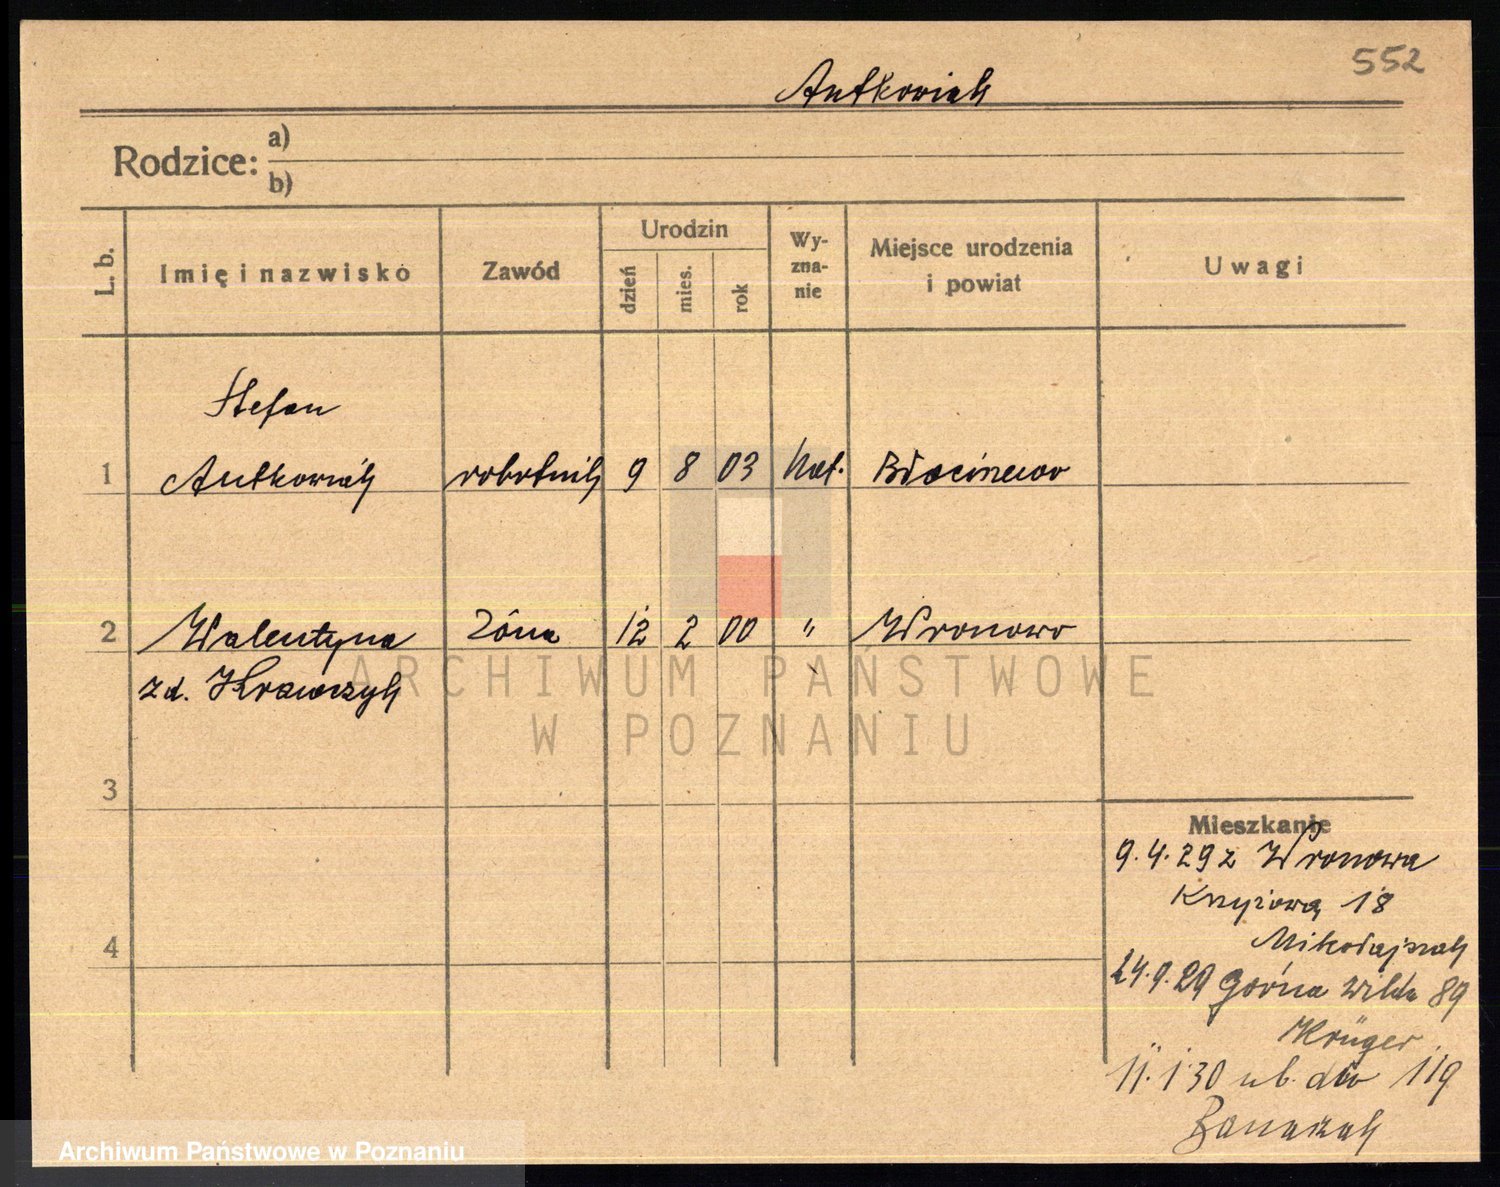 552
Antkowiak
Rodzice: a)
b)
L. b.
Imię i nazwisko
Zawód
Urodzin
dzień
mies.
rok
Wy-
zna-
nie
Miejsce urodzenia
i powiat
Uwagi
Stefan
1 Antkowiak robotnik 9 8 03 kat.
2 Walentyna żona 12 2 00 " Wronowo
zd. Krawczyk
3
4
Mieszkanie
9.4.29 z Wronowa
18
Mikołajczak
24.9.29 Górna Wilda 89
Krüger
11.1 30 119
Banaszak
ARCHIWUM PAŃSTWOWE
W POZNANIU
Archiwum Państwowe w Poznaniu